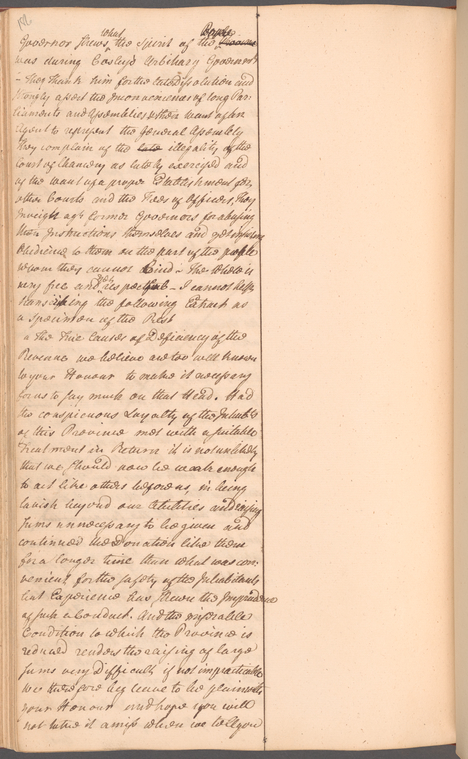 Governor shews what the Spirit of the People
was during Cosby's Arbitrary Governmt
— They thank him for the late Dissolution and
strongly assert the Inconveniences of long Par-
liaments and Assemblies & their want of an
Agent to represent the General Assembly
They complain of the late illegality of the
Court of Chancery as lately exercised and
of the want of a proper Establishment for
other Courts and the Fees of Officers, They
Inveigh agt former Governors for abusing
their Instructions themselves and yet
Obedience to them on the part of the people
whom they cannot bind — The whole is
very free and yet respectful — I cannot help
transcribing the following Extract as
a Specimen of the Rest
"The True Causes of Deficiency of the
Revenue we believe are too well known
to your Honour to make it necessary
for us to say much on that Head. Had
the conspicuous Loyalty of the Inhabts
of this Province met with a suitable
Treatment in Return it is not unlikely
that we should now be weak enough
to act like others before us, in being
lavish beyond our Abilities and raising
Sums unnecessary to be given and
continued the Donation like them
for a longer time than what was con-
venient for the safety of the Inhabitants
but Experience has shewn the Imprudence
of such a Conduct. And the miserable
Condition to which the Province is
reduced renders the raising of large
Sums very Difficult if not impracticable
we therefore beg leave to be plain with
your Honour and hope you will
not take it amiss when we tell you